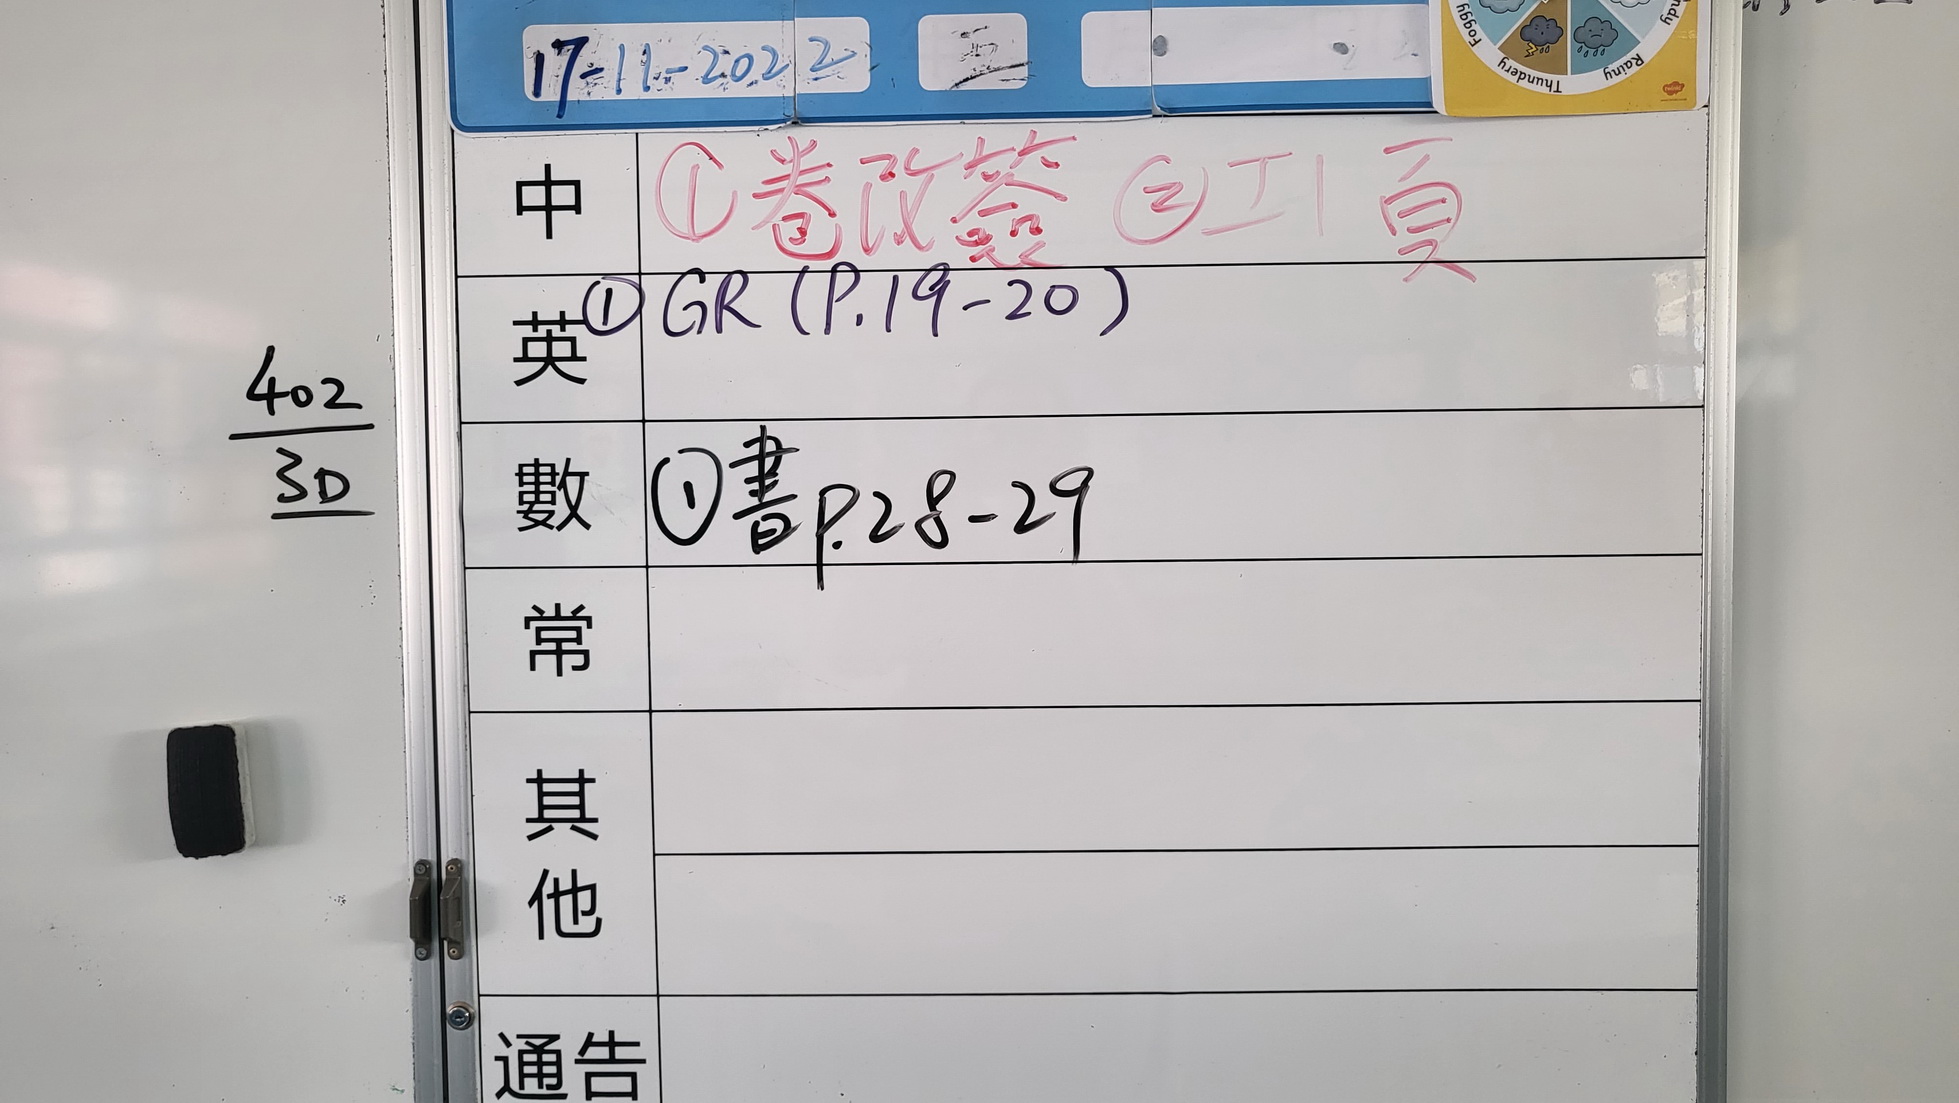 17-11-2022 三
Foggy Thundery Rainy
中 ①卷改簽 ②工1頁
英 ①GR (P.19-20)
數 ①書p.28-29
常
其他
通告
402
3D